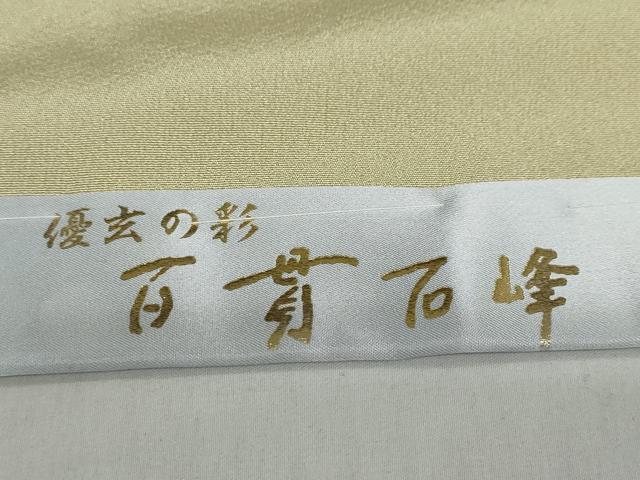 優玄の彩
百貫石峰